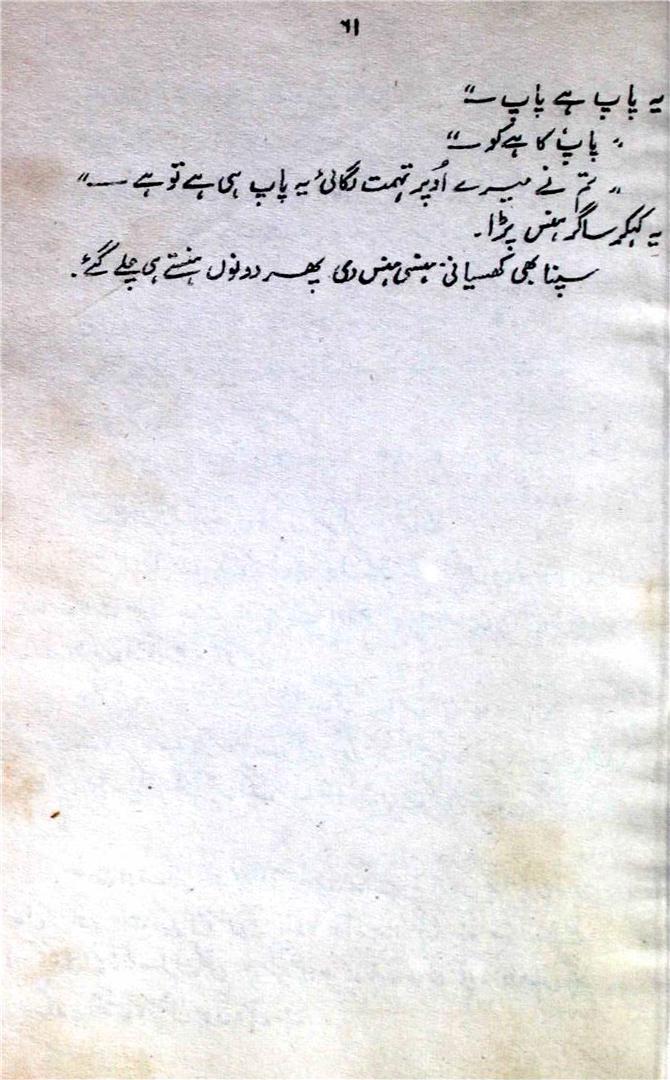 ۶۱
یہ پاپ ہے پاپ ــ"
" پاپ کا ہے کو ــ"
" تم نے میرے اُوپر تہمت لگائی یہ پاپ ہی ہے تو ہے ــ"
یہ کہکر ساگر ہنس پڑا۔
سپنا بھی کھسیانی ہنسی ہنس دی پھر دونوں ہنستے ہی چلے گئے۔